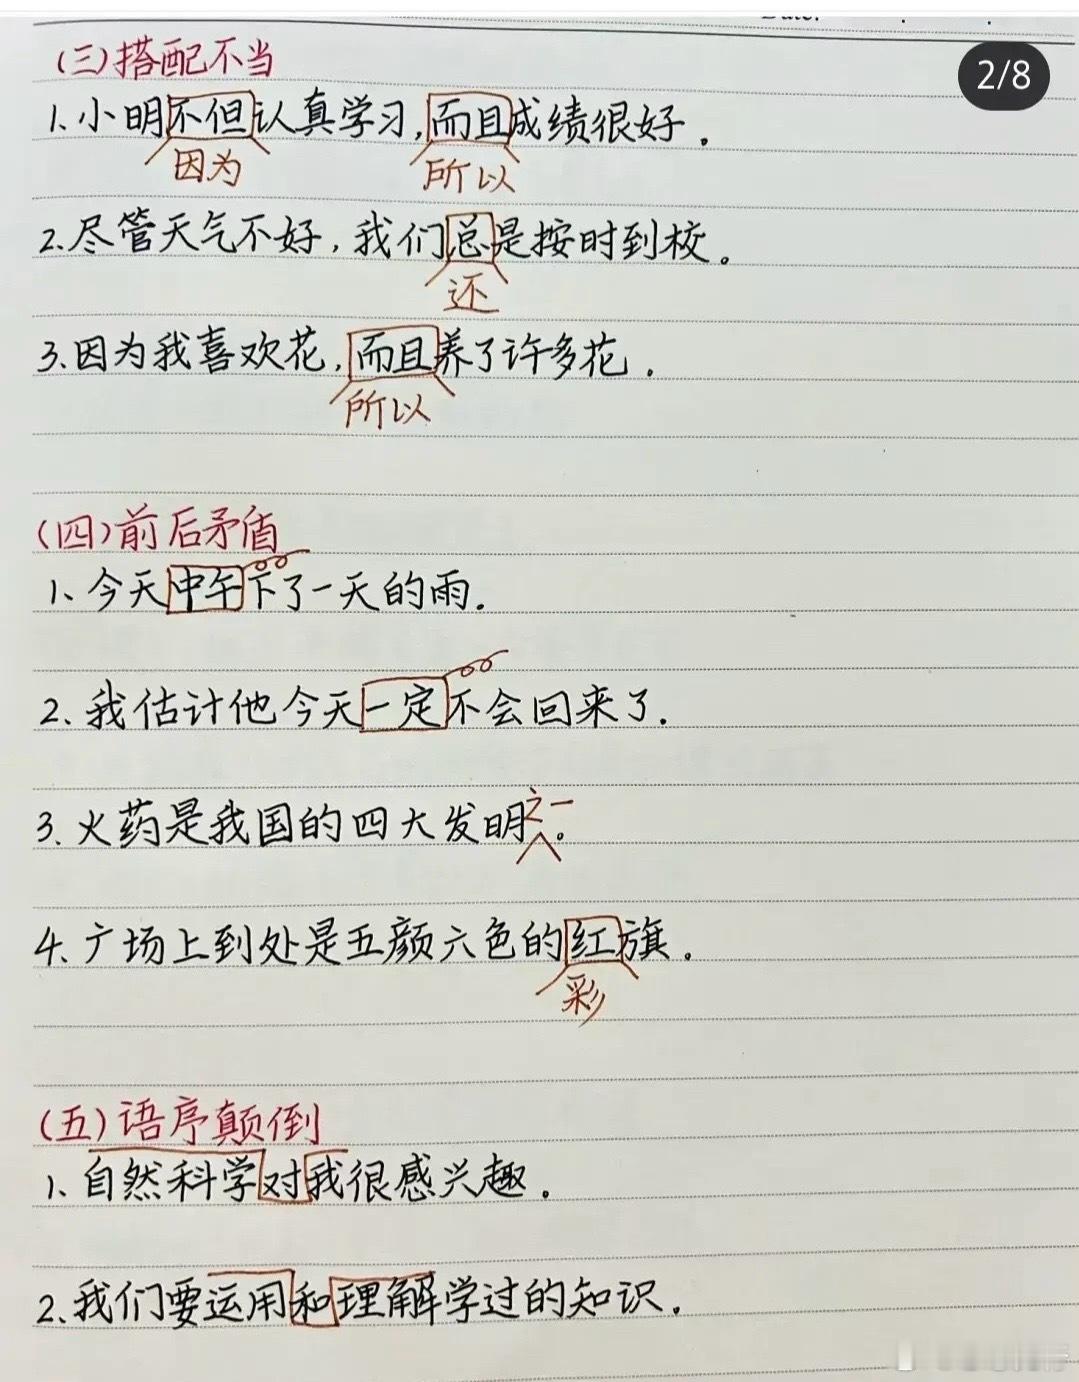 2/8
(三)搭配不当
1、小明不但认真学习,而且成绩很好。
因为 所以
2.尽管天气不好,我们总是按时到校。
还
3.因为我喜欢花,而且养了许多花.
所以
(四)前后矛盾
1、今天中午下了一天的雨.
2、我估计他今天一定不会回来了.
之一
3.火药是我国的四大发明。
4.广场上到处是五颜六色的红旗。
彩
(五)语序颠倒
1、自然科学对我很感兴趣。
2.我们要运用和理解学过的知识.